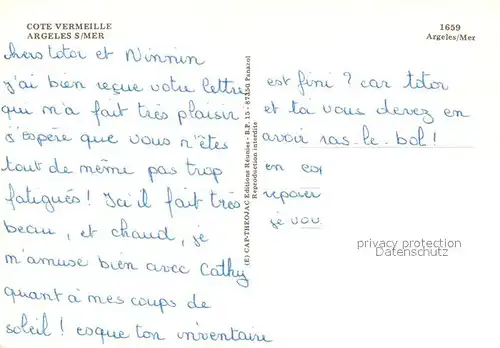 COTE VERMEILLE
ARGELES S/MER
1659
Argeles/Mer
chers totor et Ninnin
j'ai bien reçue votre lettre
qui m'a fait très plaisir
j'espère que vous n'êtes
tout de même pas trop
fatigués! Ici il fait très
beau, et chaud, je
m'amuse bien avec Cathy
quant à mes coups de
soleil! esque ton inventaire
(E) CAP-THEOJAC Editions Réunies - B.P. 15 - 87350 Panazol
Reproduction interdite
est fini? car totor
et toi vous devez en
avoir ras-le-bol!
en
reposer
je vou
privacy protection
Datenschutz